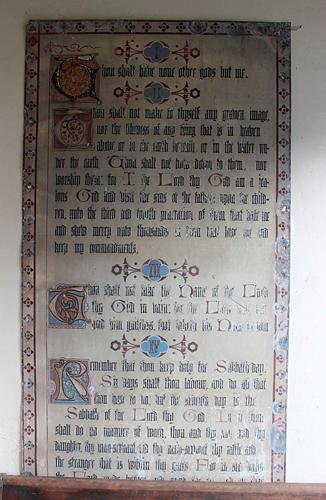 I
Thou shalt have none other gods but me.
II
Thou shalt not make to thyself any graven image,
nor the likeness of any thing that is in heaven
above, or in the earth beneath, or in the water un-
der the earth. Thou shalt not bow down to them, nor
worship them: for I the Lord thy God am a jea-
lous God and visit the sins of the fathers upon the chil-
dren, unto the third and fourth generation of them that hate me
and shew mercy unto thousands in them that love me and
keep my commandments.
III
Thou shalt not take the Name of the Lord
thy God in vain: for the Lord will not
hold him guiltless, that taketh his Name in vain
IV
Remember that thou keep holy the Sabbath-day.
Six days shalt thou labour, and do all that
thou hast to do; but the seventh day is the
Sabbath of the Lord thy God. In it thou
shalt do no manner of work, thou, and thy son, and thy
daughter, thy man-servant, and thy maid-servant, thy cattle, and
the stranger that is within thy gates. For in six days
the Lord made heaven